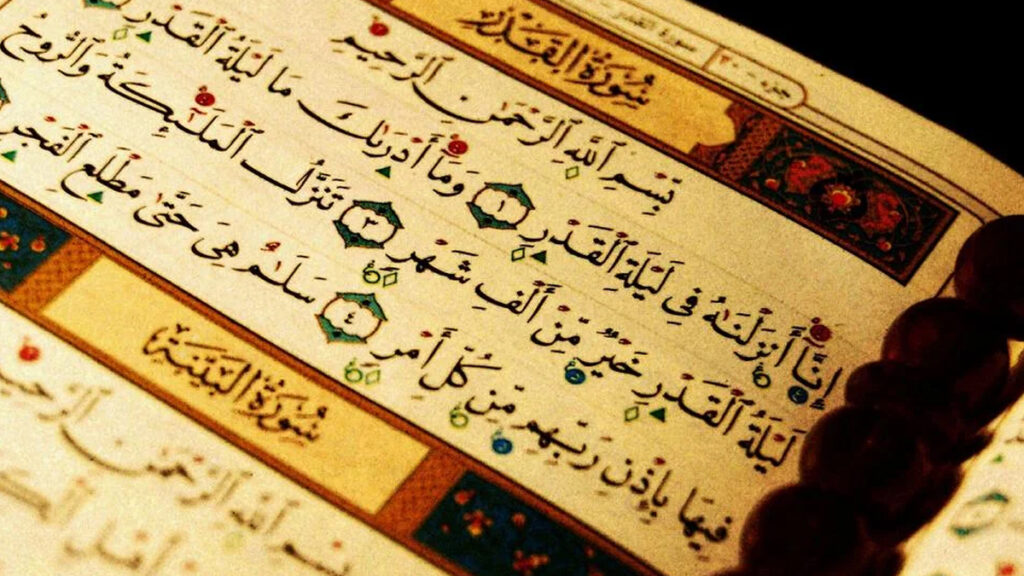 سورة القدر
جزء ٣٠
سُورَةُ الْقَدْرِ
بِسْمِ ٱللَّهِ ٱلرَّحْمَٰنِ ٱلرَّحِيمِ
إِنَّآ أَنزَلْنَٰهُ فِى لَيْلَةِ ٱلْقَدْرِ ١ وَمَآ أَدْرَىٰكَ مَا لَيْلَةُ ٱلْقَدْرِ
لَيْلَةُ ٱلْقَدْرِ خَيْرٌ مِّنْ أَلْفِ شَهْرٍ ٣ تَنَزَّلُ ٱلْمَلَٰٓئِكَةُ وَٱلرُّوحُ
فِيهَا بِإِذْنِ رَبِّهِم مِّن كُلِّ أَمْرٍ ٤ سَلَٰمٌ هِىَ حَتَّىٰ مَطْلَعِ ٱلْفَجْرِ
سُورَةُ الْبَيِّنَةِ
بِسْمِ ٱللَّهِ ٱلرَّحْمَٰنِ ٱلرَّحِيمِ